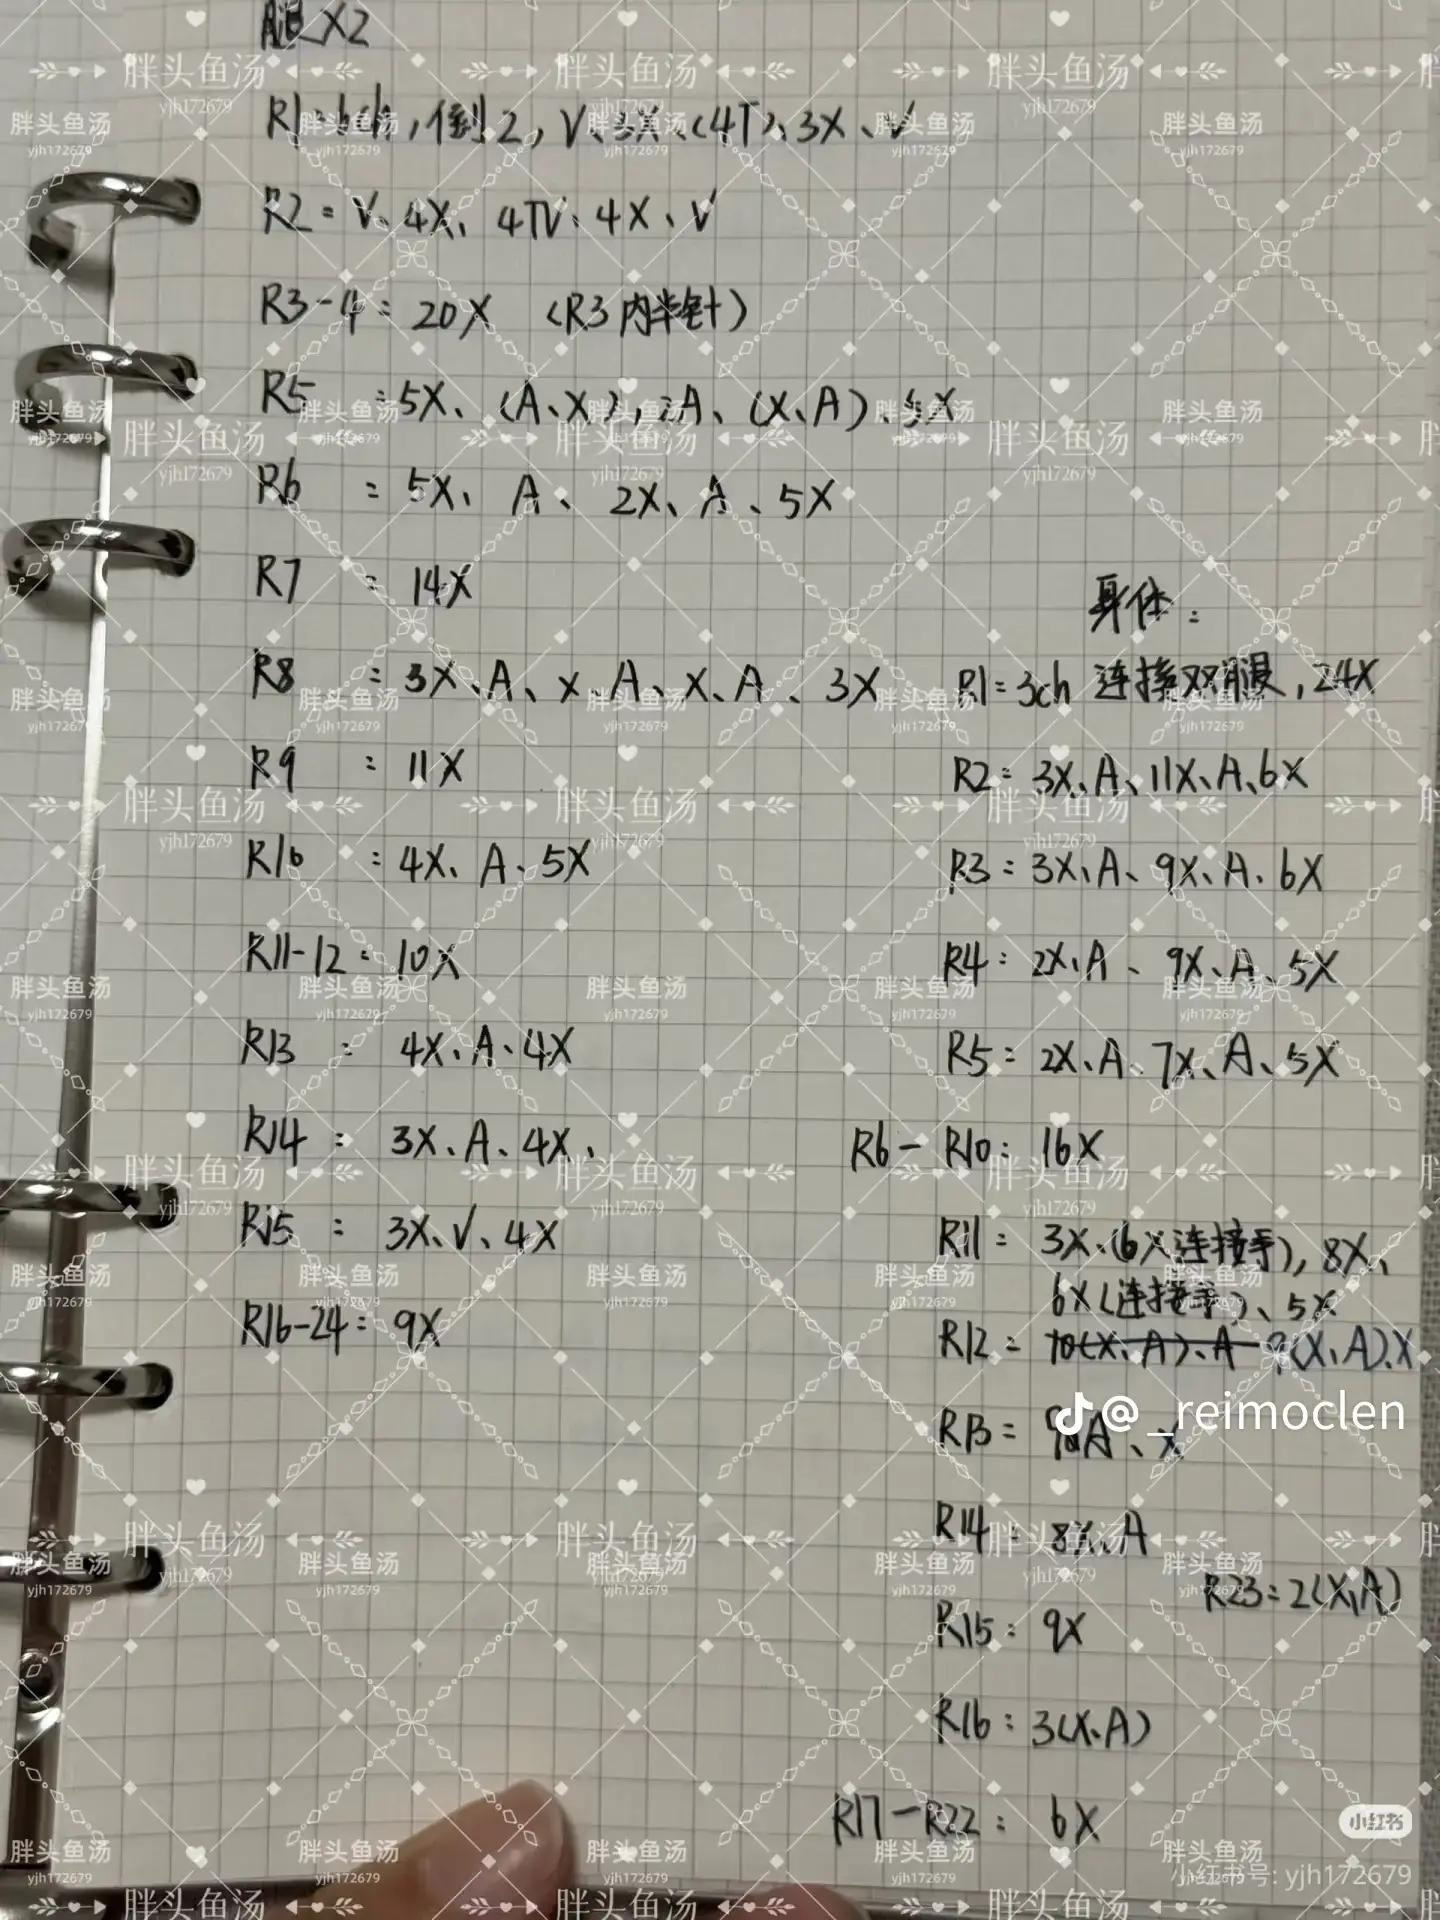 腿X2
R1=6ch,倒2,V、3X、(4T)、3X、V
R2=V、4X、4TV、4X、V
R3-4=20X (R3内半针)
R5=5X、(A、X),2A、(X、A)、5X
R6=5X、A、2X、A、5X
R7=14X
R8=3X、A、X、A、X、A、3X
R9=11X
R10=4X、A、5X
R11-12=10X
R13=4X、A、4X
R14=3X、A、4X、
R15=3X、V、4X
R16-24=9X
身体:
R1=3ch 连接双腿,24X
R2=3X、A、11X、A、6X
R3=3X、A、9X、A、6X
R4=2X、A、9X、A、5X
R5=2X、A、7X、A、5X
R6-R10:16X
R11=3X、(6X连接手),8X、
6X(连接手)、5X
R12=10(X、A)、A 9(X、A)、X
R13=9A、X
R14=8X、A
R15=9X
R16=3(X、A)
R17-R22=6X
R23=2(X,A)
@_reimoclen
小红书
小红书号: yjh172679
胖头鱼汤
yjh172679